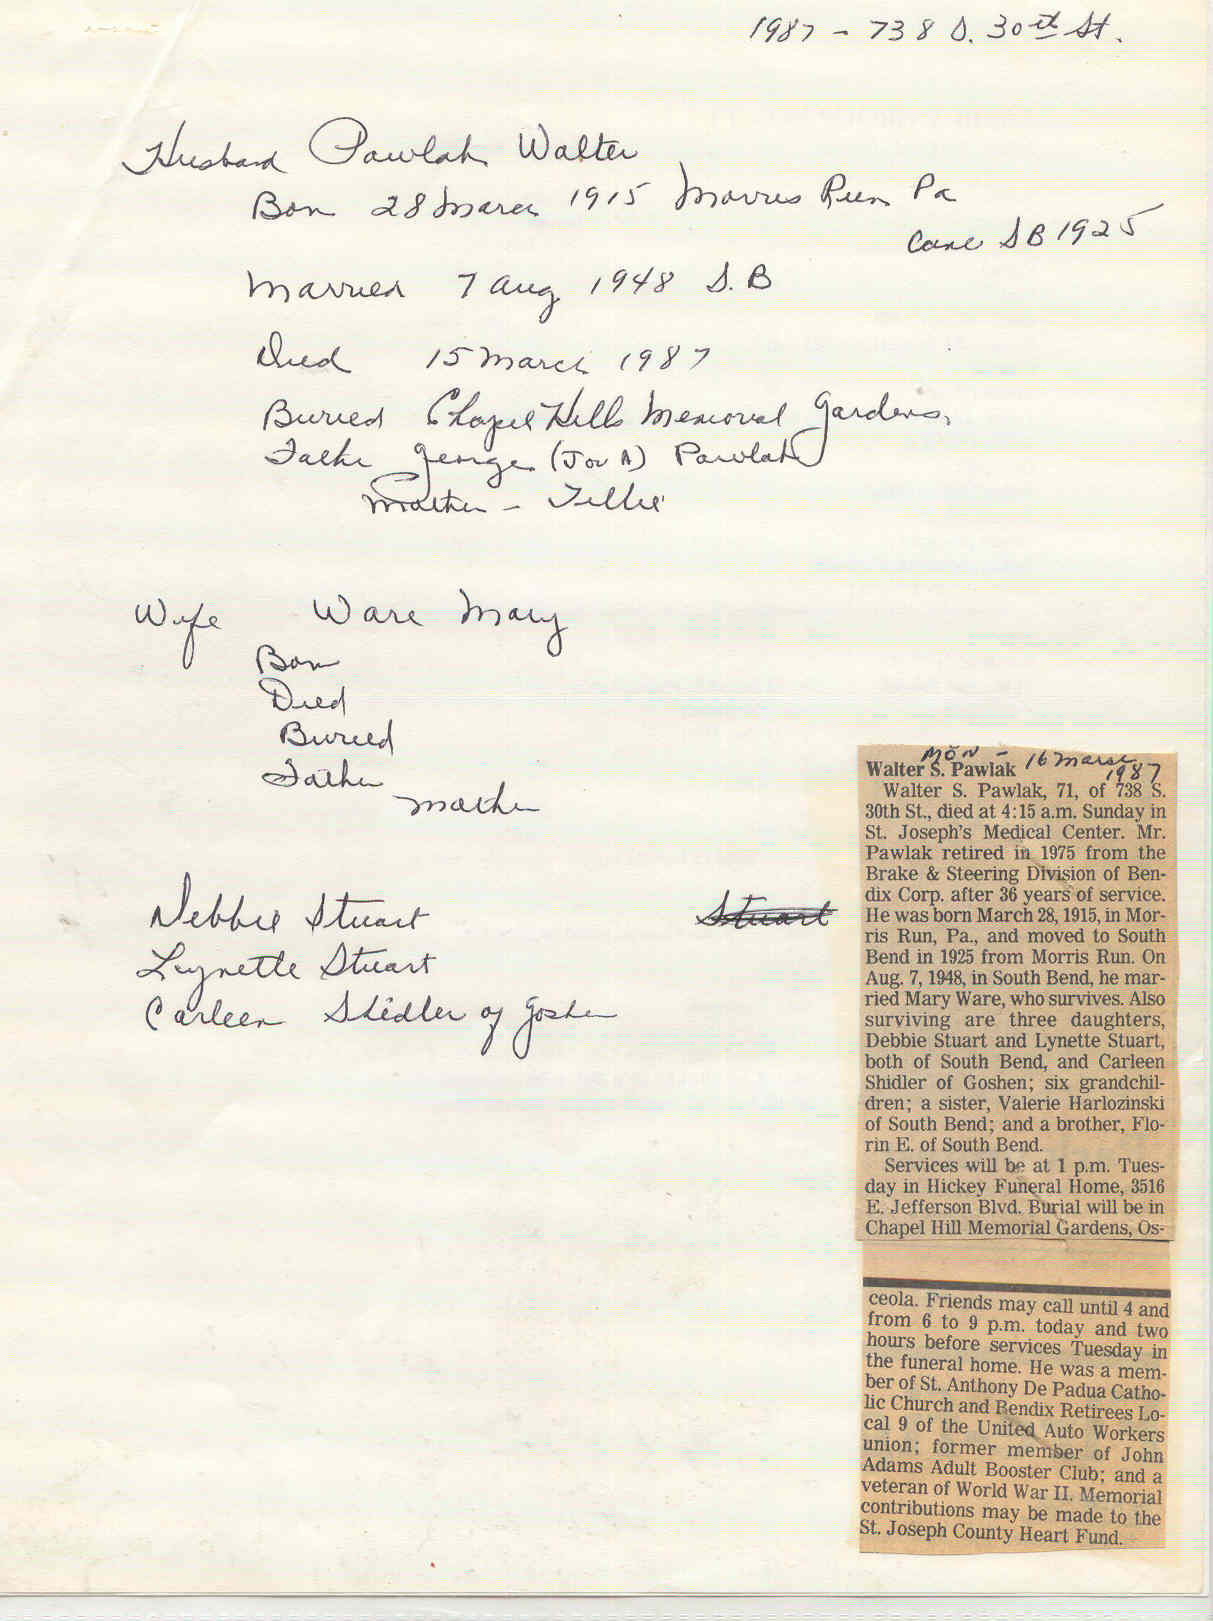 1987 - 738 S. 30th St.
Husband Pawlak Walter
Born 28 March 1915 Morris Run Pa
Came S B 1925
Married 7 Aug 1948 S. B
Died 15 March 1987
Buried Chapel Hills Memorial Gardens.
Father George (J or A) Pawlak
Mother - Tillie
Wife Ware Mary
Born
Died
Buried
Father
Mother
Debbie Stuart Stuart
Leynette Stuart
Carleen Shidler of Goshen
MON - 16 March
1987
Walter S. Pawlak
Walter S. Pawlak, 71, of 738 S.
30th St., died at 4:15 a.m. Sunday in
St. Joseph's Medical Center. Mr.
Pawlak retired in 1975 from the
Brake & Steering Division of Ben-
dix Corp. after 36 years of service.
He was born March 28, 1915, in Mor-
ris Run, Pa., and moved to South
Bend in 1925 from Morris Run. On
Aug. 7, 1948, in South Bend, he mar-
ried Mary Ware, who survives. Also
surviving are three daughters,
Debbie Stuart and Lynette Stuart,
both of South Bend, and Carleen
Shidler of Goshen; six grandchil-
dren; a sister, Valerie Harlozinski
of South Bend; and a brother, Flo-
rin E. of South Bend.
Services will be at 1 p.m. Tues-
day in Hickey Funeral Home, 3516
E. Jefferson Blvd. Burial will be in
Chapel Hill Memorial Gardens, Os-
ceola. Friends may call until 4 and
from 6 to 9 p.m. today and two
hours before services Tuesday in
the funeral home. He was a mem-
ber of St. Anthony De Padua Catho-
lic Church and Bendix Retirees Lo-
cal 9 of the United Auto Workers
union; former member of John
Adams Adult Booster Club; and a
veteran of World War II. Memorial
contributions may be made to the
St. Joseph County Heart Fund.